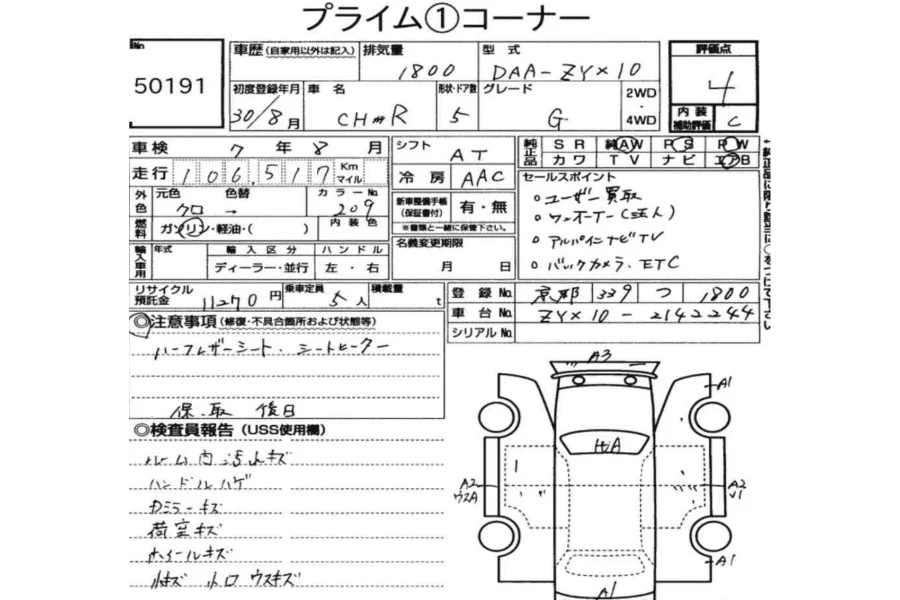 プライム①コーナー
No
50191
車歴(自家用以外は記入) 排気量 型式 評価点
1800 DAA-ZYX10 4
初度登録年月 車名 形状・ドア数 グレード 2WD・4WD
30/8月 CH-R 5 G
内装補助評価 C
車検 7年8月 シフト AT
純正品 SR 純AW PS PW
カワ TV ナビ エアB
走行 106,517 Km マイル 冷房 AAC
セールスポイント
外色 元色 色替 カラーNo.
クロ → 209
新車整備手帳(保証書付) 有・無
※書類と一緒に保管下さい。
。ユーザー買取
。ワンオーナー(法人)
。アルパインナビTV
。バックカメラ、ETC
燃料 ガソリン・軽油・( ) 内装色
名義変更期限
月 日
輸入車用 年式 輸入区分 ハンドル
ディーラー・並行 左・右
リサイクル預託金 11270円 乗車定員 5人 積載量 t
登録No. 京都 339 つ 1800
車台No. ZYX10-2142244
シリアルNo.
◎注意事項(修復・不具合箇所および状態等)
ハーフレザーシート、シートヒーター
保、取 後日
◎検査員報告(USS使用欄)
ルーム内汚レキズ
ハンドルハゲ
Dミラーキズ
荷室キズ
ホイールキズ
小キズ 小凹 ウスキズ
A3
A1
A2
ウスA
A2
A1
A1